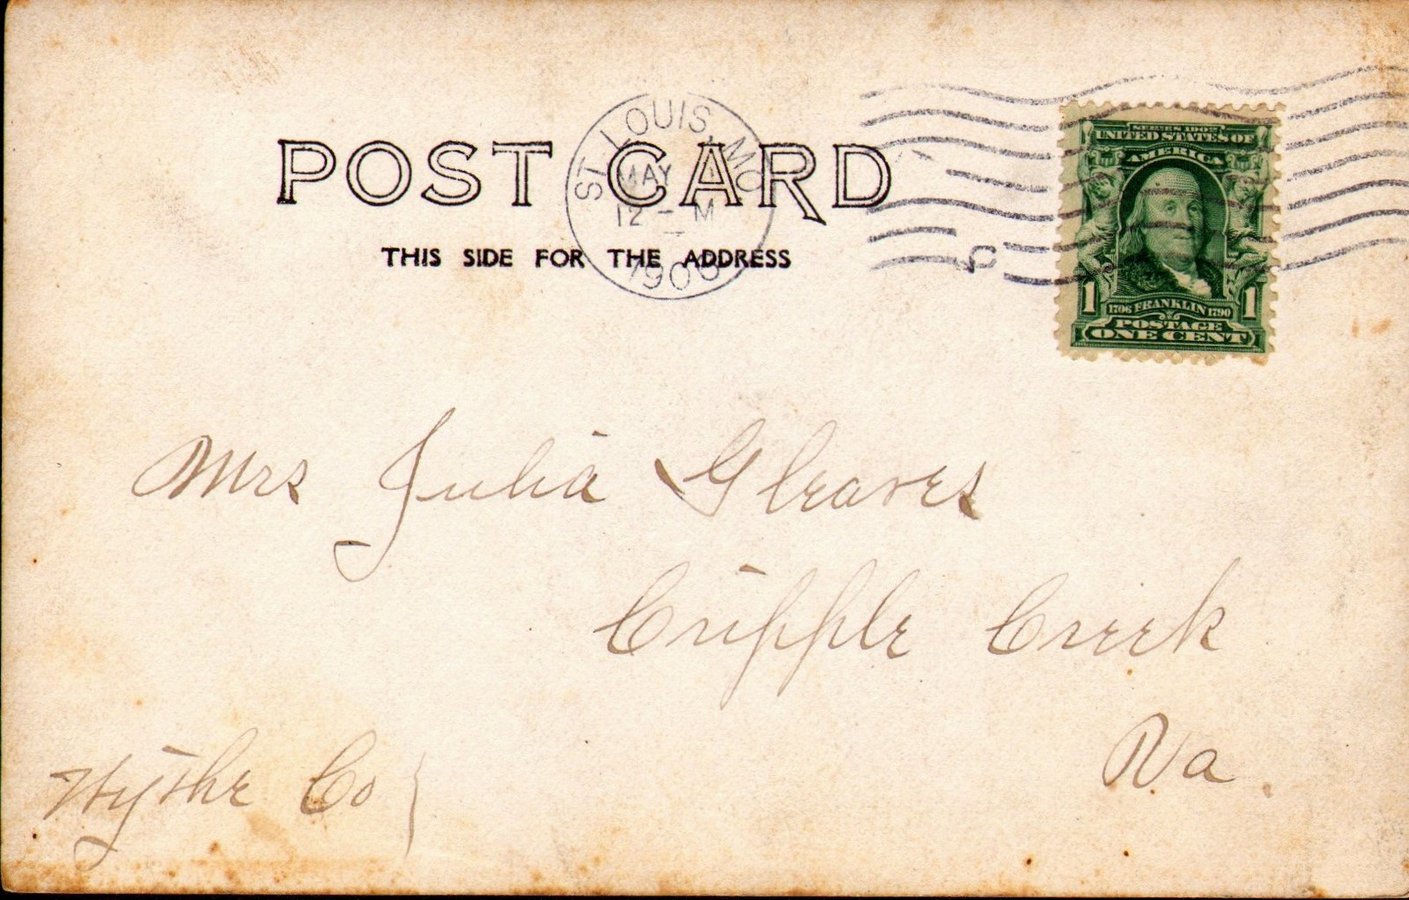 POST CARD
THIS SIDE FOR THE ADDRESS
ST. LOUIS, MO
MAY
12 - M
1906
SERIES 1902
UNITED STATES OF
AMERICA
1 1706 FRANKLIN 1790 1
POSTAGE
ONE CENT
Mrs Julia Gleaves
Cripple Creek
Va.
Wythe Co